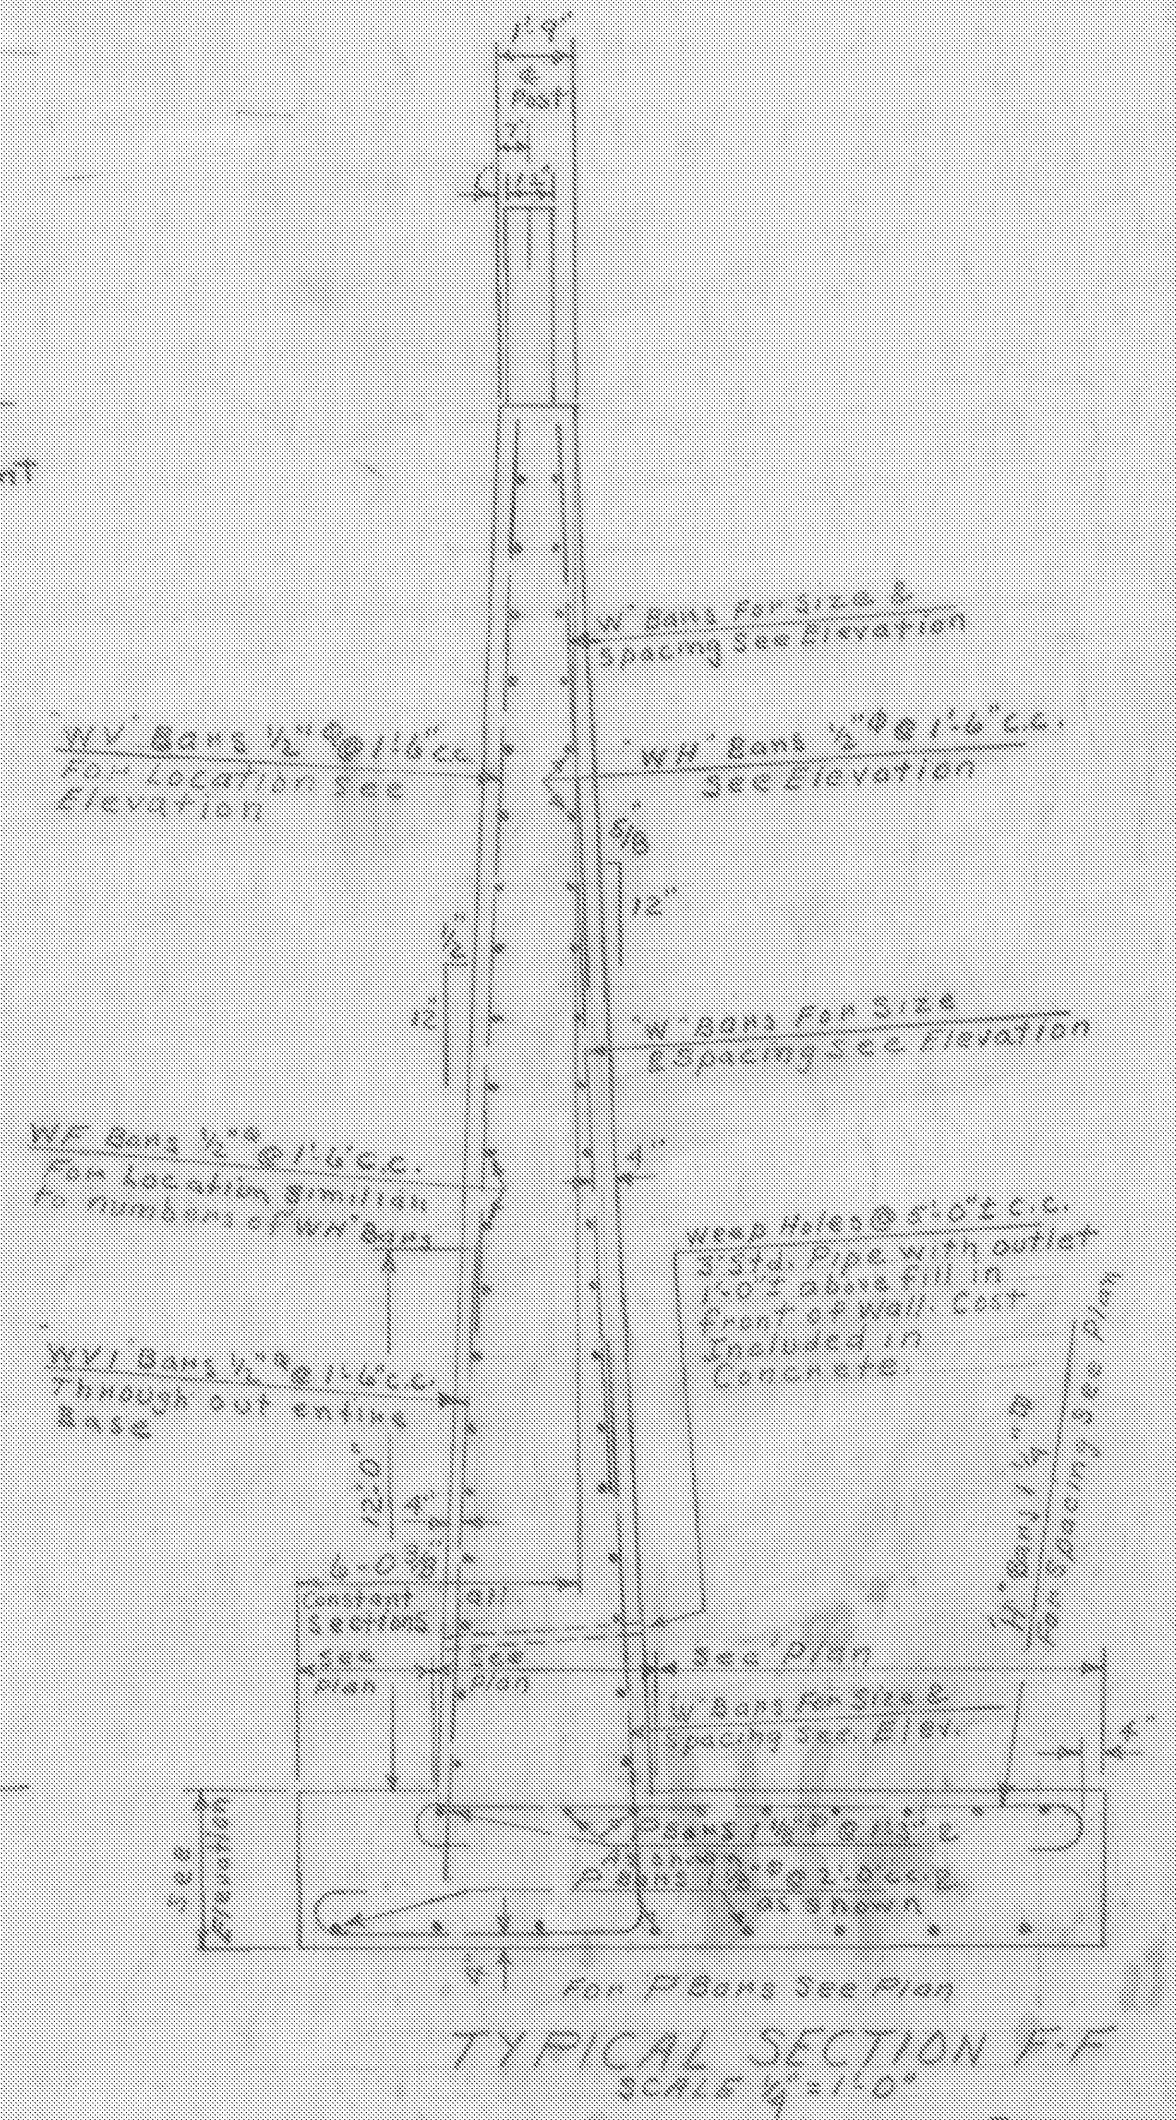 1'-9"
Post
nt
"W" Bars For Size &
Spacing See Elevation
"WV" Bars ½"⌀ @ 1'-6" c.c.
For Location See
Elevation
"WH" Bars ½"⌀ @ 1'-6" c.c.
See Elevation
5/8"
12"
½"
12"
"W" Bars For Size
& Spacing See Elevation
WF Bars ½"⌀ @ 1'-6" c.c.
For Location Similiar
To numbers of "WH" Bars
4"
Weep Holes @ 5'-0"± c.c.
3" Std. Pipe with outlet
1'-0"± above Fill in
Front of Wall. Cost
Included in
Concrete.
"WV1" Bars ½"⌀ @ 1'-6" c.c.
Through out entire
Base
12'-0"
4"
6'-0 3/8"
Constant all
Sections
See
Plan
See
Plan
See Plan
Spacing See Plan
"W" Bars For Size &
Spacing See Elev.
4"
See
Elevation
as shown
For P Bars See Plan
TYPICAL SECTION F-F
SCALE ¼" = 1'-0"